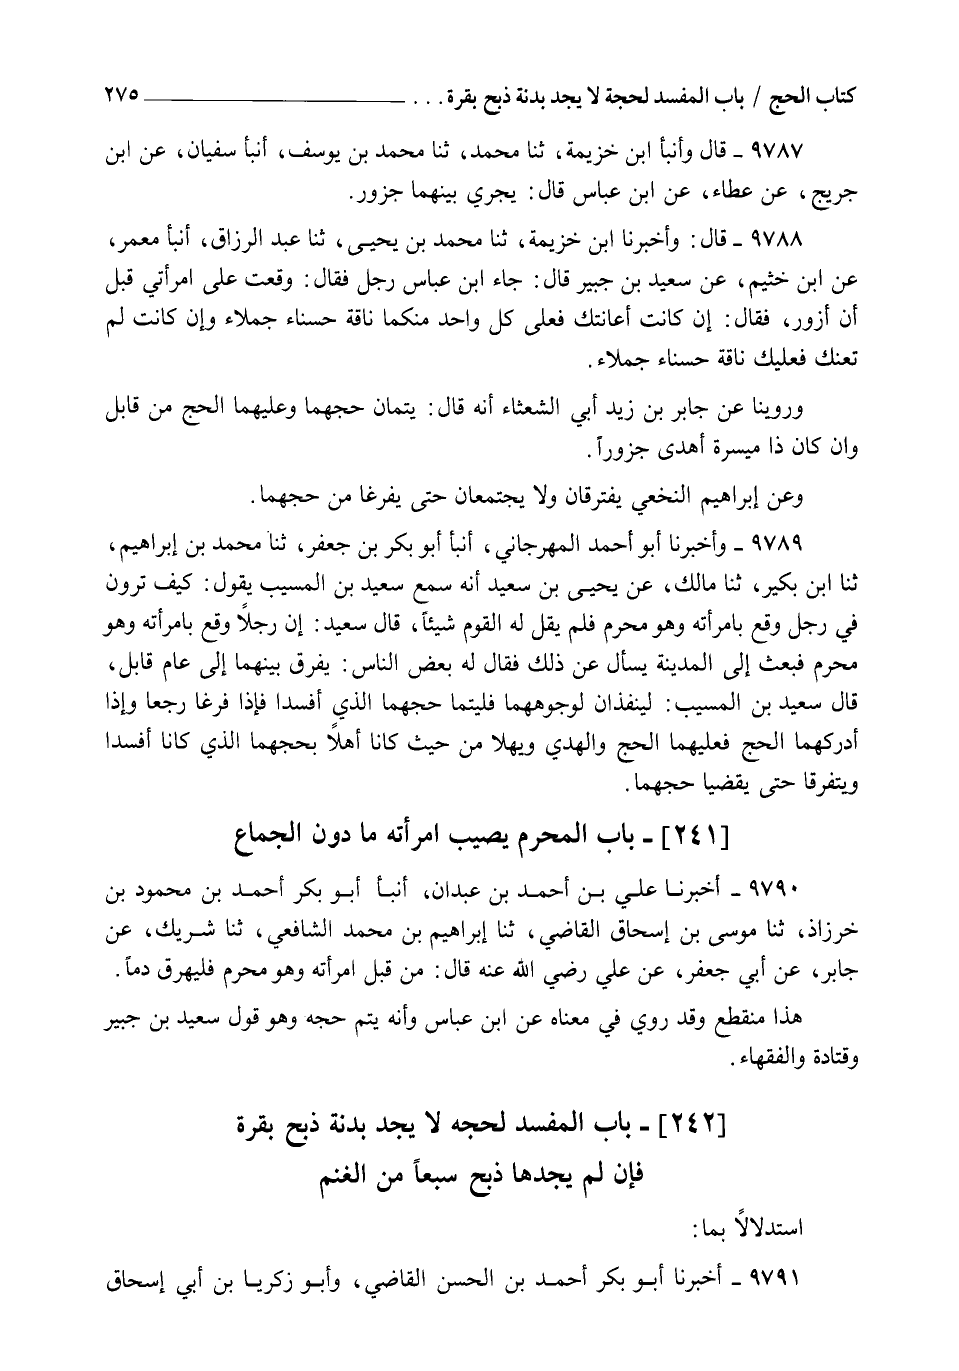 كتاب الحج / باب المفسد لحجة لا يجد بدنة ذبح بقرة . . . ــــــــــــــــــــــــ ٢٧٥
٩٧٨٧ ـ قال وأنبأ ابن خزيمة، ثنا محمد، ثنا محمد بن يوسف، أنبأ سفيان، عن ابن
جريج، عن عطاء، عن ابن عباس قال: يجري بينهما جزور.
٩٧٨٨ ـ قال: وأخبرنا ابن خزيمة، ثنا محمد بن يحيـى، ثنا عبد الرزاق، أنبأ معمر،
عن ابن خثيم، عن سعيد بن جبير قال: جاء ابن عباس رجل فقال: وقعت على امرأتي قبل
أن أزور، فقال: إن كانت أعانتك فعلى كل واحد منكما ناقة حسناء جملاء وإن كانت لم
تعنك فعليك ناقة حسناء جملاء.
وروينا عن جابر بن زيد أبي الشعثاء أنه قال: يتمان حجهما وعليهما الحج من قابل
وان كان ذا ميسرة أهدى جزوراً.
وعن إبراهيم النخعي يفترقان ولا يجتمعان حتى يفرغا من حجهما.
٩٧٨٩ ـ وأخبرنا أبو أحمد المهرجاني، أنبأ أبو بكر بن جعفر، ثنا محمد بن إبراهيم،
ثنا ابن بكير، ثنا مالك، عن يحيـى بن سعيد أنه سمع سعيد بن المسيب يقول: كيف ترون
في رجل وقع بامرأته وهو محرم فلم يقل له القوم شيئاً، قال سعيد: إن رجلاً وقع بامرأته وهو
محرم فبعث إلى المدينة يسأل عن ذلك فقال له بعض الناس: يفرق بينهما إلى عام قابل،
قال سعيد بن المسيب: لينفذان لوجوههما فليتما حجهما الذي أفسدا فإذا فرغا رجعا وإذا
أدركهما الحج فعليهما الحج والهدي ويهلا من حيث كانا أهلاً بحجهما الذي كانا أفسدا
ويتفرقا حتى يقضيا حجهما.
[٢٤١] ـ باب المحرم يصيب امرأته ما دون الجماع
٩٧٩٠ ـ أخبرنـا علـي بـن أحمـد بن عبدان، أنبـأ أبـو بكر أحمـد بن محمود بن
خرزاذ، ثنا موسى بن إسحاق القاضي، ثنا إبراهيم بن محمد الشافعي، ثنا شريك، عن
جابر، عن أبي جعفر، عن علي رضي الله عنه قال: من قبل امرأته وهو محرم فليهرق دماً.
هذا منقطع وقد روي في معناه عن ابن عباس وأنه يتم حجه وهو قول سعيد بن جبير
وقتادة والفقهاء.
[٢٤٢] ـ باب المفسد لحجه لا يجد بدنة ذبح بقرة
فإن لم يجدها ذبح سبعاً من الغنم
استدلالاً بما:
٩٧٩١ ـ أخبرنا أبـو بكر أحمـد بن الحسن القاضي، وأبـو زكريـا بن أبي إسحاق